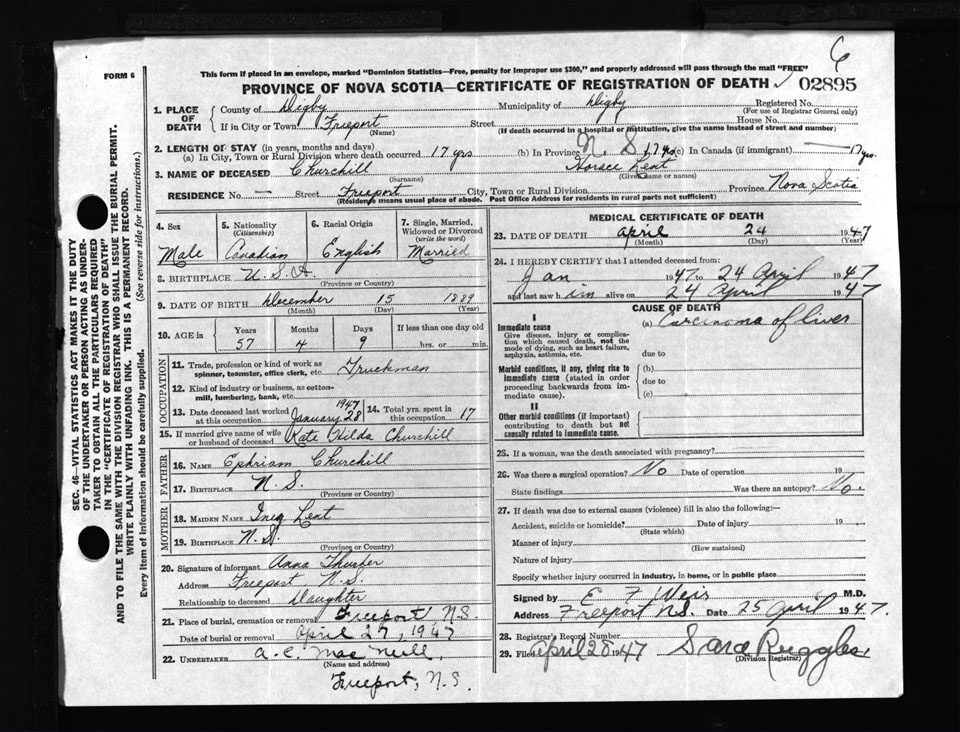 6
FORM 6
This form if placed in an envelope, marked "Dominion Statistics—Free, penalty for improper use $300," and properly addressed will pass through the mail "FREE"
PROVINCE OF NOVA SCOTIA—CERTIFICATE OF REGISTRATION OF DEATH 02895
SEC. 46—VITAL STATISTICS ACT MAKES IT THE DUTY
OF THE UNDERTAKER OR PERSON ACTING AS UNDER-
TAKER TO OBTAIN ALL THE PARTICULARS REQUIRED
IN THE "CERTIFICATE OF REGISTRATION OF DEATH"
AND TO FILE THE SAME WITH THE DIVISION REGISTRAR WHO SHALL ISSUE THE BURIAL PERMIT.
WRITE PLAINLY WITH UNFADING INK. THIS IS A PERMANENT RECORD.
Every item of information should be carefully supplied. (See reverse side for instructions.)
1. PLACE OF DEATH
County of Digby Municipality of Digby Registered No.
(For use of Registrar General only)
If in City or Town Freeport Street House No.
(Name) (If death occurred in a hospital or institution, give the name instead of street and number)
2. LENGTH OF STAY (in years, months and days)
(a) In City, Town or Rural Division where death occurred 17 yrs (b) In Province N. S. 17 yrs (c) In Canada (if immigrant) — 17 yrs.
3. NAME OF DECEASED Churchill Horace Lent
(Surname) (Given name or names)
RESIDENCE No. — Street Freeport City, Town or Rural Division Province Nova Scotia
(Residence means usual place of abode. Post Office Address for residents in rural parts not sufficient)
4. Sex
Male
5. Nationality
(Citizenship)
Canadian
6. Racial Origin
English
7. Single, Married,
Widowed or Divorced
(write the word)
Married
8. BIRTHPLACE U.S.A.
(Province or Country)
9. DATE OF BIRTH December 15 1889
(Month) (Day) (Year)
10. AGE in Years Months Days If less than one day old
57 4 9 hrs. or min.
OCCUPATION
11. Trade, profession or kind of work as
spinner, teamster, office clerk, etc. Truckman
12. Kind of industry or business, as cotton-
mill, lumbering, bank, etc.
13. Date deceased last worked
at this occupation January 28 1947
14. Total yrs. spent in
this occupation 17
15. If married give name of wife
or husband of deceased Kate Hilda Churchill
FATHER
16. NAME Ephriam Churchill
17. BIRTHPLACE N.S.
(Province or Country)
MOTHER
18. MAIDEN NAME Inez Lent
19. BIRTHPLACE N.S.
(Province or Country)
20. Signature of informant Anna Thurber
Address Freeport N.S.
Relationship to deceased Daughter
21. Place of burial, cremation or removal Freeport, N.S.
Date of burial or removal April 27, 1947
22. UNDERTAKER A. C. MacNeill,
(Name and address)
Freeport, N.S.
MEDICAL CERTIFICATE OF DEATH
23. DATE OF DEATH April 24 1947
(Month) (Day) (Year)
24. I HEREBY CERTIFY that I attended deceased from:
Jan 1947 to 24 April 1947
and last saw him alive on 24 April 1947
CAUSE OF DEATH
I
Immediate cause (a) Carcinoma of liver
Give disease, injury or complica-
tion which caused death, not the
mode of dying, such as heart failure,
asphyxia, asthenia, etc. due to
Morbid conditions, if any, giving rise to (b)
immediate cause (stated in order due to
proceeding backwards from im-
mediate cause). (c)
II
Other morbid conditions (if important)
contributing to death but not
causally related to immediate cause.
25. If a woman, was the death associated with pregnancy?
26. Was there a surgical operation? No Date of operation 19
State findings Was there an autopsy? No.
27. If death was due to external causes (violence) fill in also the following:—
Accident, suicide or homicide? Date of injury 19
(State which)
Manner of injury
(How sustained)
Nature of injury
Specify whether injury occurred in industry, in home, or in public place
Signed by E F Weir M.D.
Address Freeport N.S. Date 25 April 1947.
28. Registrar's Record Number
29. Filed April 28 1947 Sara Ruggles
(Division Registrar)